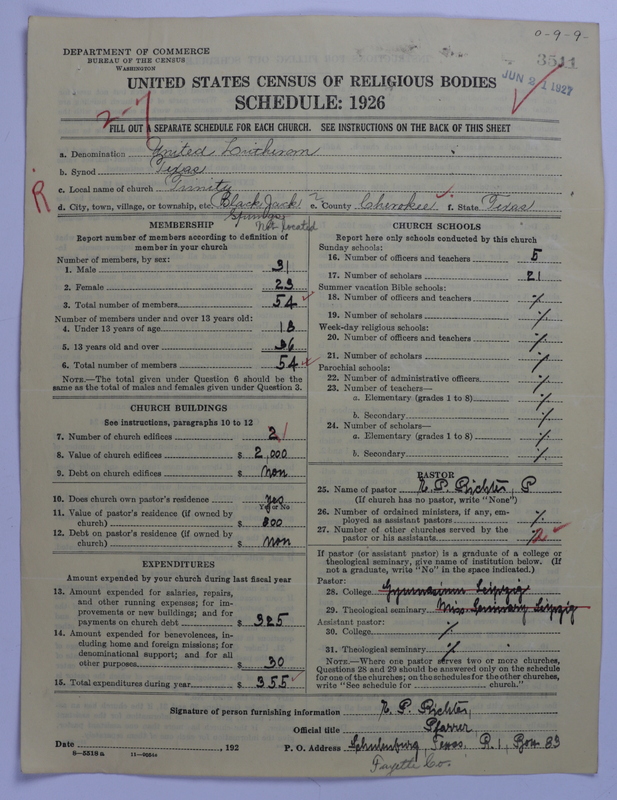 0-9-9-
DEPARTMENT OF COMMERCE
BUREAU OF THE CENSUS
WASHINGTON
3511
JUN 21 1927
UNITED STATES CENSUS OF RELIGIOUS BODIES
SCHEDULE: 1926
2-7
FILL OUT A SEPARATE SCHEDULE FOR EACH CHURCH. SEE INSTRUCTIONS ON THE BACK OF THIS SHEET
a. Denomination United
b. Synod Texas
R
c. Local name of church Trinity
d. City, town, village, or township, etc. Black Jack ? e. County Cherokee f. State Texas
Springs
Not located
MEMBERSHIP
Report number of members according to definition of
member in your church
Number of members, by sex:
1. Male 31
2. Female 23
3. Total number of members 54
Number of members under and over 13 years old:
4. Under 13 years of age 18
5. 13 years old and over 36
6. Total number of members 54
NOTE.—The total given under Question 6 should be
same as the total of males and females given under Question 3.
CHURCH BUILDINGS
See instructions, paragraphs 10 to 12
7. Number of church edifices 2
8. Value of church edifices $ 2,000
9. Debt on church edifices $ non
10. Does church own pastor's residence yes
Yes or No
11. Value of pastor's residence (if owned by
church) $ 800
12. Debt on pastor's residence (if owned by
church) $ non
EXPENDITURES
Amount expended by your church during last fiscal year
13. Amount expended for salaries, repairs,
and other running expenses; for im-
provements or new buildings; and for
payments on church debt $ 325
14. Amount expended for benevolences, in-
cluding home and foreign missions; for
denominational support; and for all
other purposes $ 30
15. Total expenditures during year $ 355
CHURCH SCHOOLS
Report here only schools conducted by this church
Sunday schools:
16. Number of officers and teachers 5
17. Number of scholars 21
Summer vacation Bible schools:
18. Number of officers and teachers %
19. Number of scholars %
Week-day religious schools:
20. Number of officers and teachers %
21. Number of scholars %
Parochial schools:
22. Number of administrative officers %
23. Number of teachers—
a. Elementary (grades 1 to 8) %
b. Secondary %
24. Number of scholars—
a. Elementary (grades 1 to 8) %
b. Secondary %
PASTOR
25. Name of pastor P. Richter, P
(If church has no pastor, write "None")
26. Number of ordained ministers, if any, em-
ployed as assistant pastors %
27. Number of other churches served by the
pastor or his assistants 2
If pastor (or assistant pastor) is a graduate of a college or
theological seminary, give name of institution below. (If
not a graduate, write "No" in the space indicated.)
Pastor:
28. College Gymnasium Leipzig
29. Theological seminary Miss. Seminary Leipzig
Assistant pastor:
30. College %
31. Theological seminary %
NOTE.—Where one pastor serves two or more churches,
Questions 28 and 29 should be answered only on the schedule
for one of the churches; on the schedules for the other churches,
write "See schedule for church."
Signature of person furnishing information P. Richter,
Official title Pfarrer
Date , 192 P. O. Address Schulenburg, Texas. R. 1, Box 83
Fayette Co.